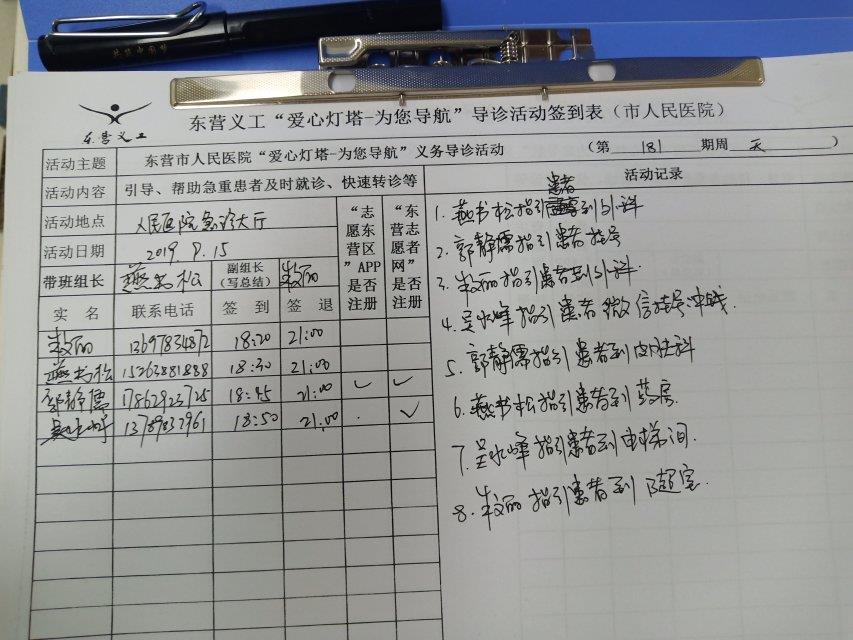 共筑中国梦
东营义工
东营义工“爱心灯塔-为您导航”导诊活动签到表（市人民医院）
活动主题 东营市人民医院“爱心灯塔-为您导航”义务导诊活动 （第 181 期周 天 ）
活动内容 引导、帮助急重患者及时就诊、快速转诊等
活动地点 人民医院急诊大厅
活动日期 2019.9.15
带班组长 燕书松 副组长（写总结）
“志愿东营区”APP是否注册
“东营志愿者网”是否注册
实 名 联系电话 签 到 签 退
13697834872 18:20 21:00
燕书松 15263881888 18:30 21:00
郭静儒 17862923725 18:45 21:00 ✓ ✓
吴永峰 13789837961 18:50 21:00 . ✓
活动记录
患者
1. 燕书松指引到外科
2. 郭静儒指引患者挂号
3. 指引患者到外科.
4. 吴永峰指引患者微信挂号冲钱.
5. 郭静儒指引患者到内科
6. 燕书松指引患者到药房.
7. 吴永峰指引患者到电梯间.
8. 指引患者到B超室.